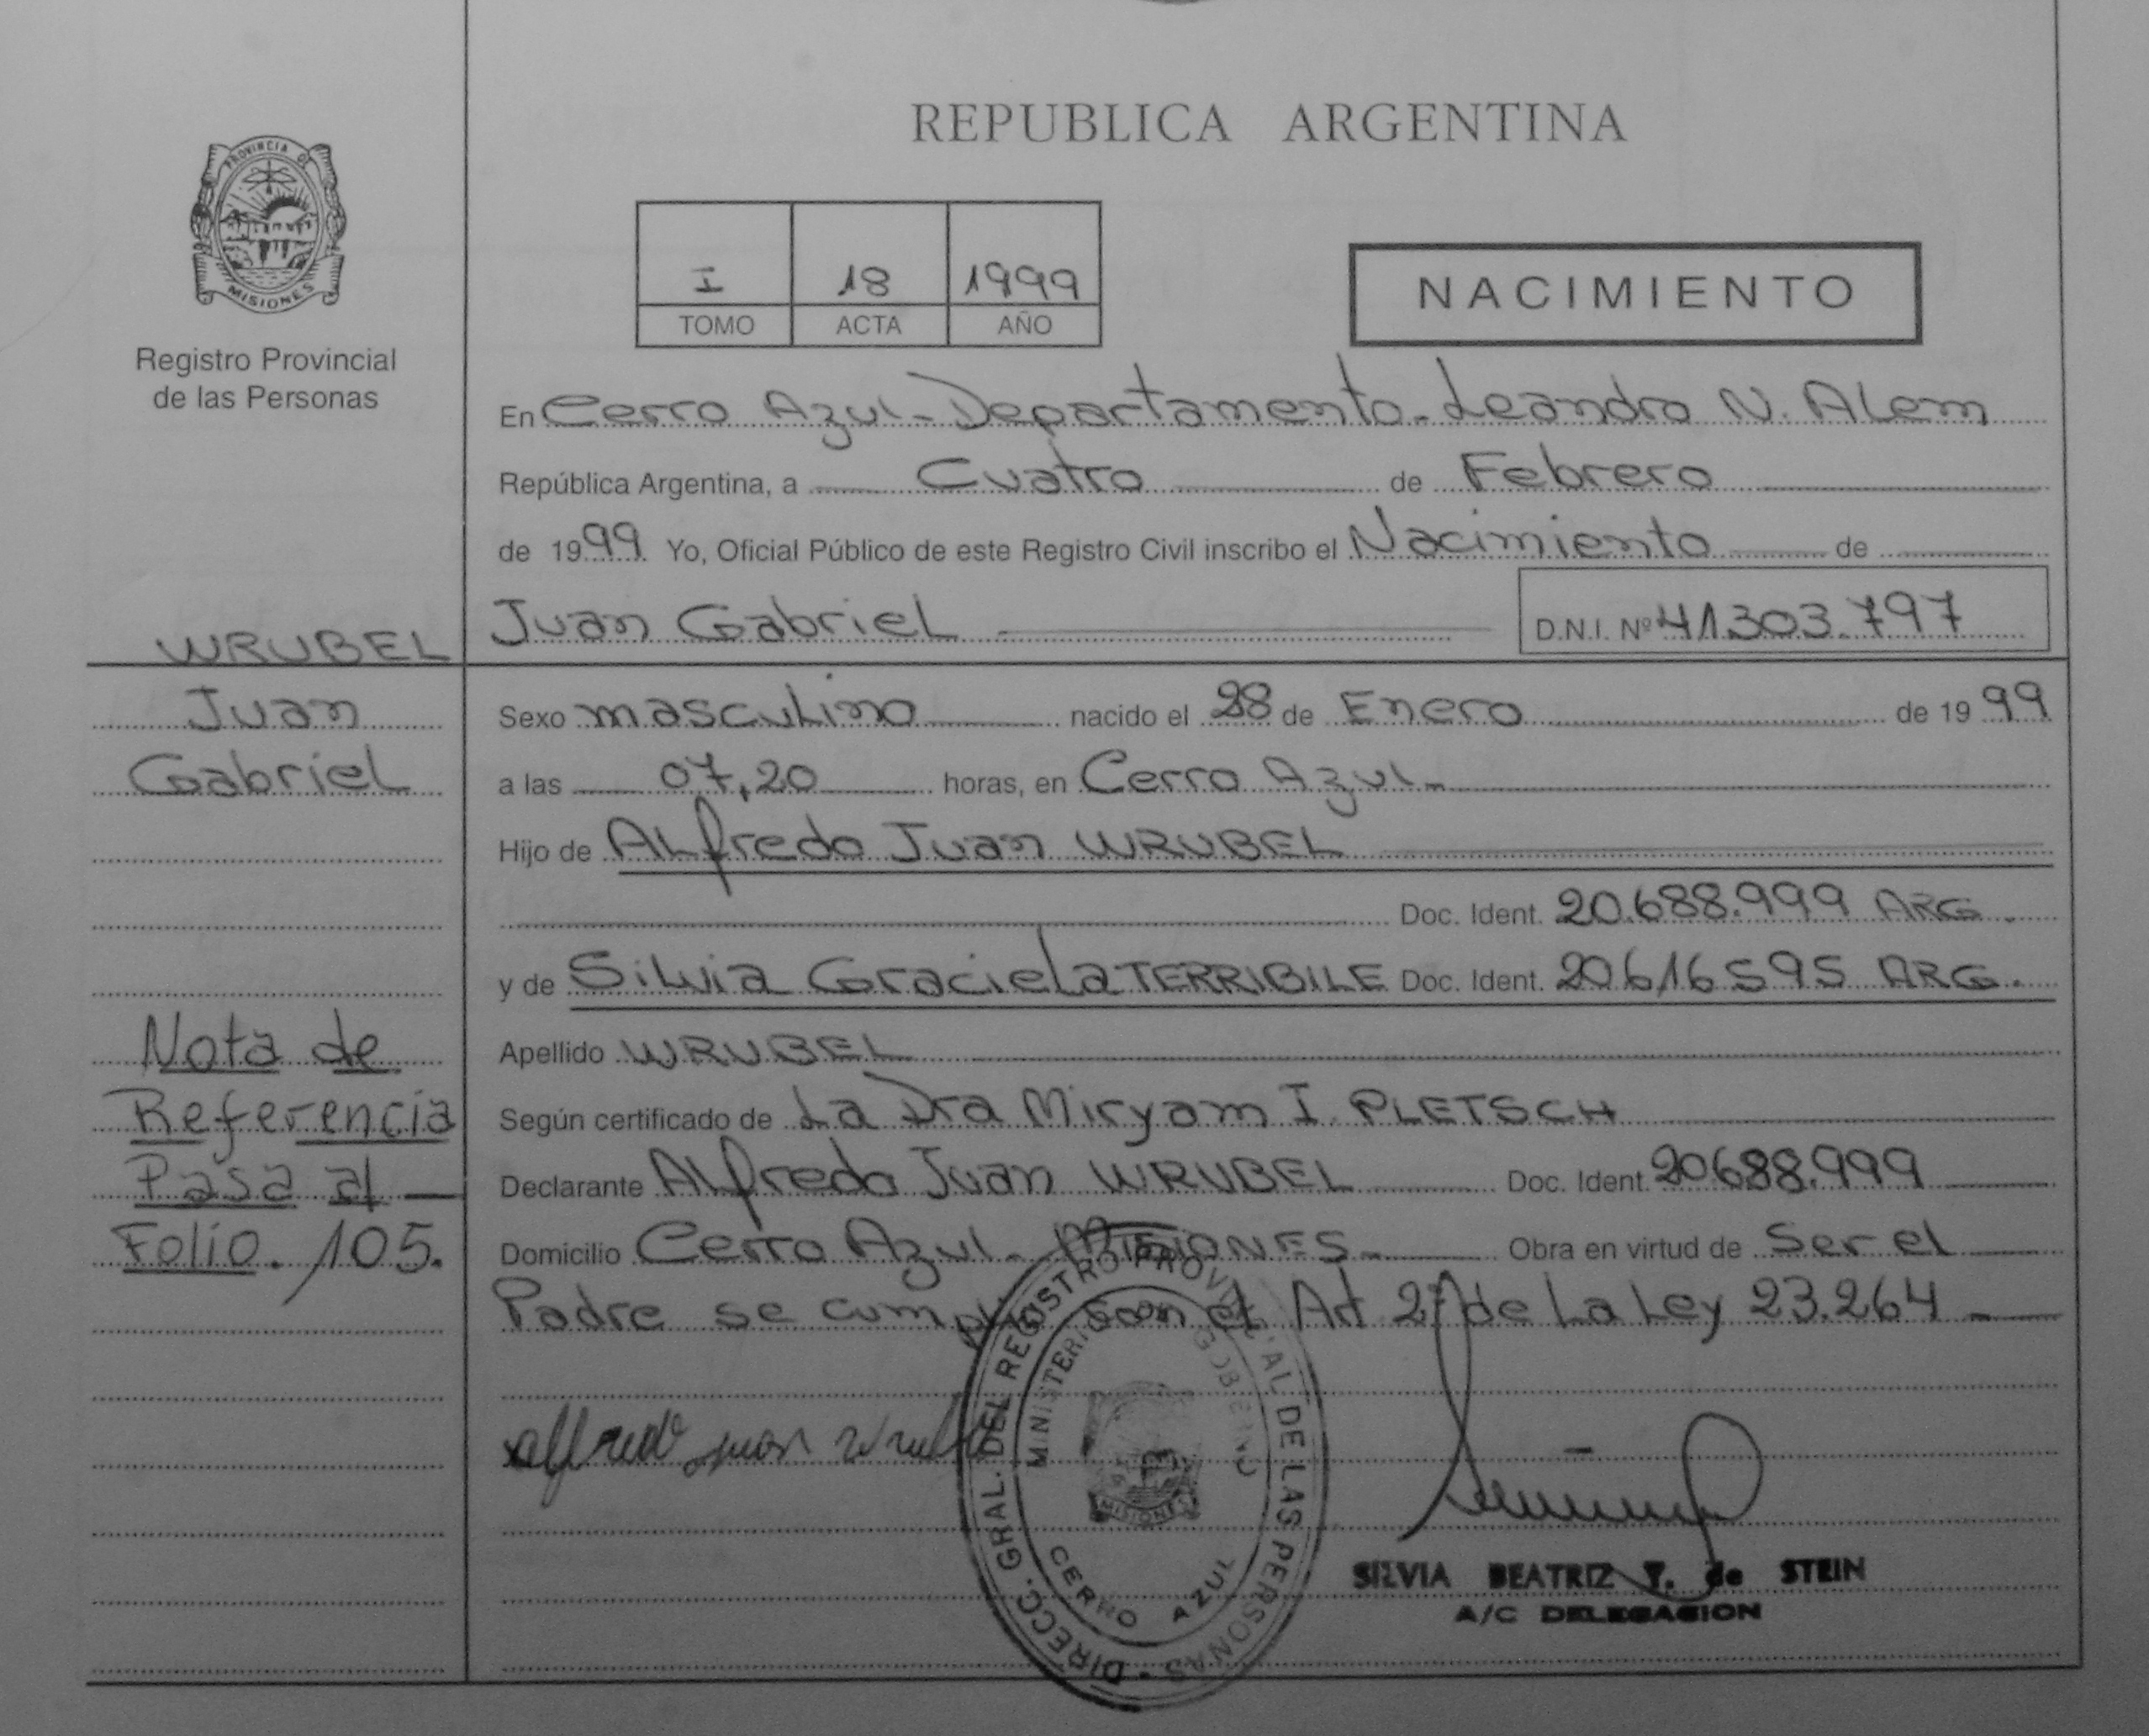 REPUBLICA ARGENTINA
PROVINCIA DE
MISIONES
Registro Provincial
de las Personas
I 18 1999
TOMO ACTA AÑO
NACIMIENTO
En Cerro Azul - Departamento - Leandro N. Alem
República Argentina, a Cuatro de Febrero
de 1999 Yo, Oficial Público de este Registro Civil inscribo el Nacimiento de
Juan Gabriel D.N.I. Nº 41.303.797
WRUBEL
Juan
Gabriel
Sexo masculino nacido el 28 de Enero de 1999
a las 07,20 horas, en Cerro Azul -
Hijo de Alfredo Juan WRUBEL
Doc. Ident. 20.688.999 ARG.
y de Silvia Graciela TERRIBILE Doc. Ident. 20.616595 ARG.
Apellido WRUBEL
Según certificado de La Dra Miryam I. PLETSCH
Declarante Alfredo Juan WRUBEL Doc. Ident. 20688.999
Domicilio Cerro Azul - MISIONES - Obra en virtud de Ser el
Padre se con el Art 2º de La Ley 23.264
Nota de
Referencia
Pasa al
Folio. 105.
alfredo juan wrubel
DIRECC. GRAL. DEL REGISTRO PROVINCIAL DE LAS PERSONAS
MINISTERIO GOBIERNO
MISIONES
CERRO AZUL
SILVIA BEATRIZ T. de STEIN
A/C DELEGACION